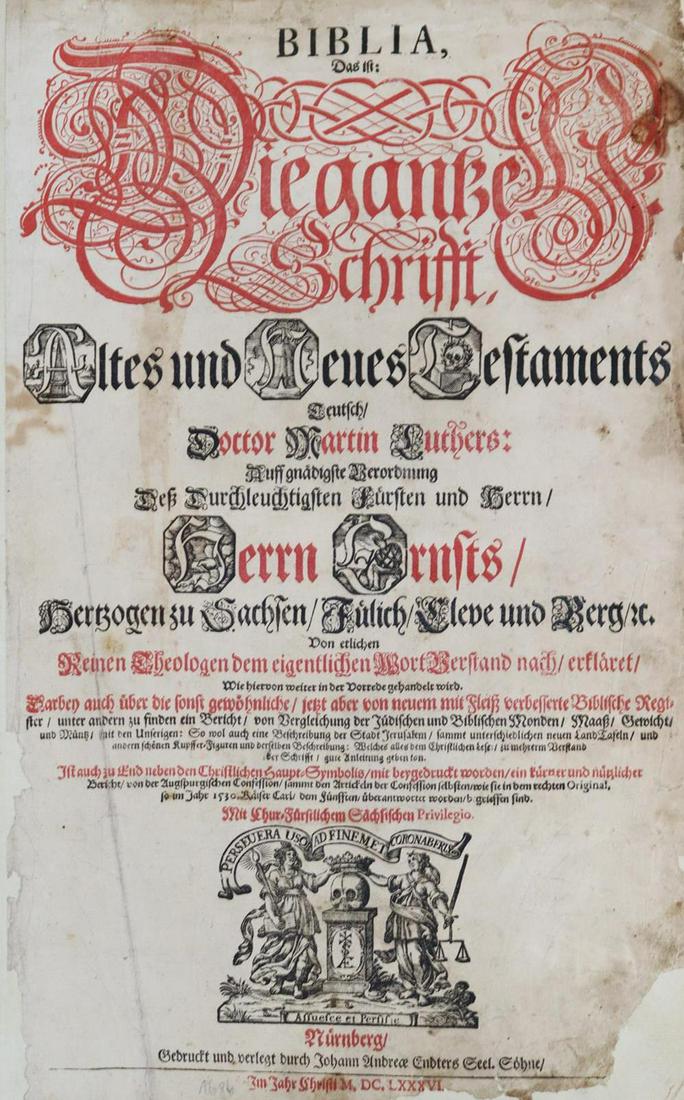 BIBLIA,
Das ist:
Die gantze H.
Schrifft,
Altes und Neues Testaments
Teutsch/
Doctor Martin Luthers:
Auff gnädigste Verordnung
Deß Durchleuchtigsten Fürsten und Herrn/
Herrn Ernsts/
Hertzogen zu Sachsen/ Jülich/ Cleve und Berg/ ꝛc.
Von etlichen
Reinen Theologen dem eigentlichen Wort Verstand nach/ erkläret/
Wie hiervon weiter in der Vorrede gehandelt wird.
Darbey auch über die sonst gewöhnliche/ jetzt aber von neuem mit Fleiß verbesserte Biblische Regi-
ster/ unter andern zu finden ein Bericht/ von Vergleichung der Jüdischen und Biblischen Monden/ Maaß/ Gewicht/
und Müntz/ mit den Unserigen: So wol auch eine Beschreibung der Stadt Jerusalem/ sammt unterschiedlichen neuen Land Tafeln/ und
andern schönen Kupffer-Figuren und derselben Beschreibung: Welches alles dem Christlichen Leser/ zu mehrerm Verstand
der Schrifft/ gute Anleitung geben kan.
Ist auch zu End neben den Christlichen Haupt-Symbolis/ mit beygedruckt worden/ ein kurtzer und nützlicher
Bericht/ von der Augspurgischen Confession/ sammt den Articteln der Confession selbsten/ wie sie in dem rechten Original,
so im Jahr 1530. Kaiser Carl/ dem Fünfften/ überantwortet worden/ begrieffen sind.
Mit Chur-Fürstlichem Sächsischen Privilegio.
PERSEVERA USQ AD FINEM ET CORONABERIS
Assuesce et Persiste
Nürnberg/
Gedruckt und verlegt durch Johann Andreæ Endters Seel. Söhne/
Im Jahr Christi M. DC. LXXXVI.
1686